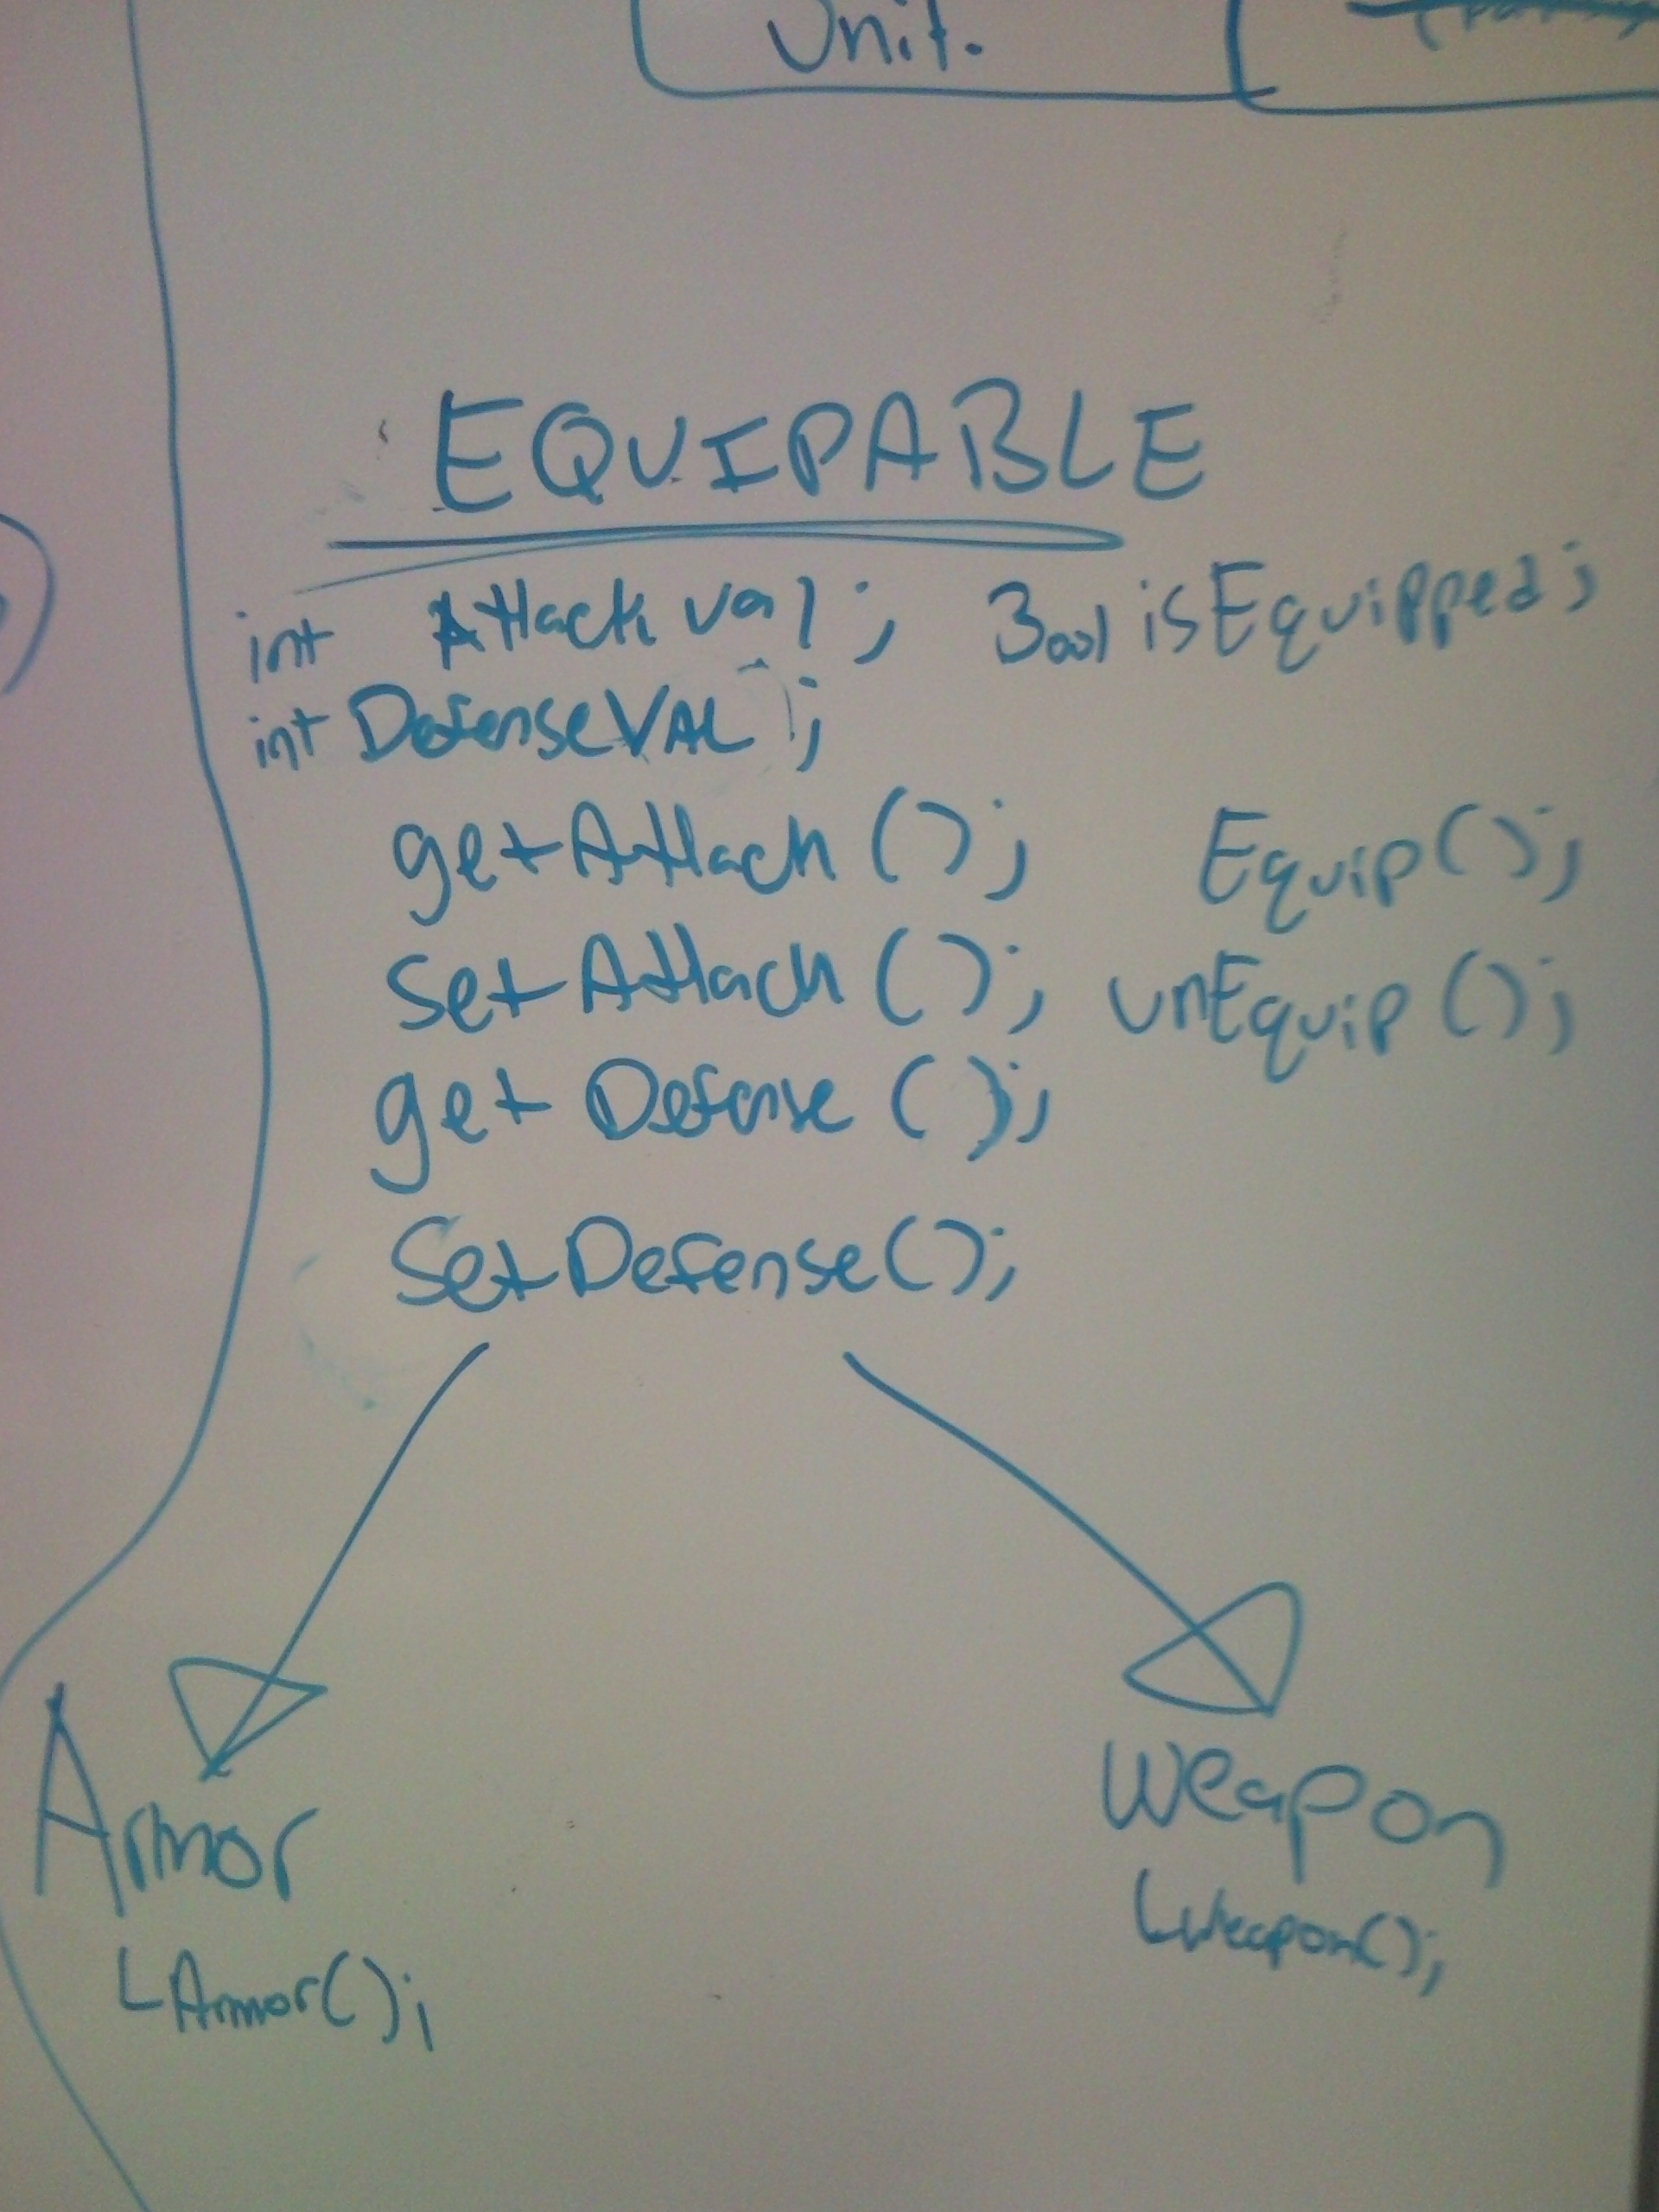 Unit.
EQUIPABLE
int Attack val; Bool isEquipped;
int DefenseVAL;
getAttack(); Equip();
SetAttack(); unEquip();
get Defense();
SetDefense();
Armor
Armor();
Weapon
Weapon();